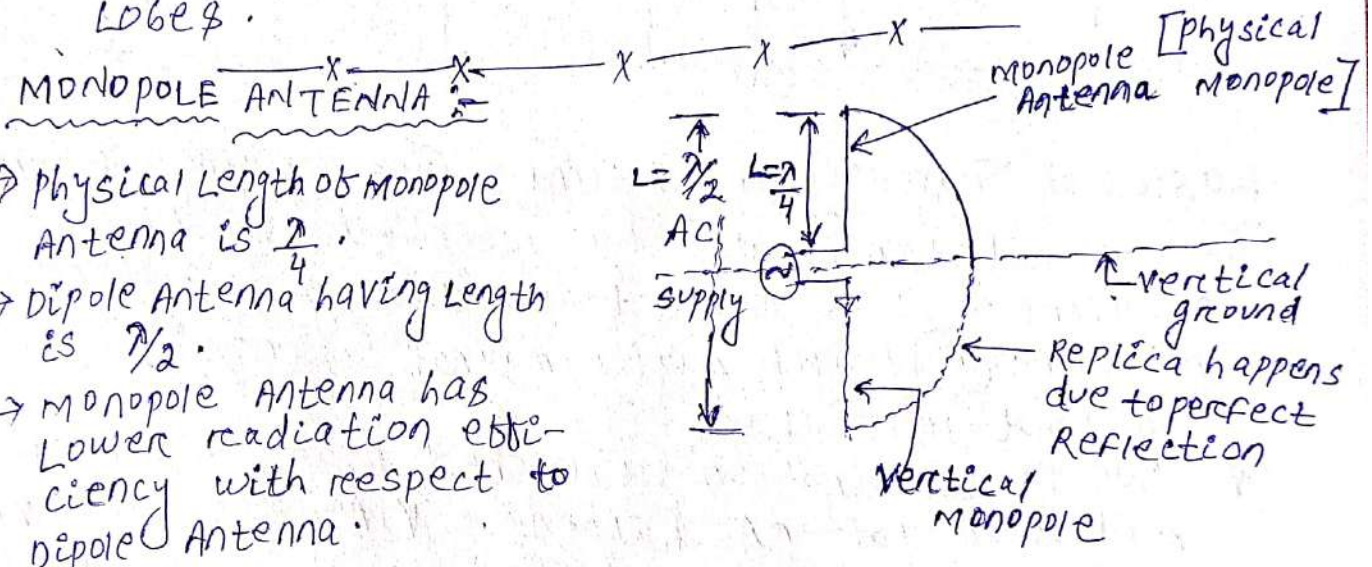 Lobes.
MONOPOLE ANTENNA :-
→ Physical Length of monopole
Antenna is λ/4.
→ Dipole Antenna having Length
is λ/2.
→ Monopole Antenna has
Lower radiation effi-
ciency with reespect to
Dipole Antenna.
Monopole [Physical
Antenna Monopole]
L= λ/2 L=λ/4
AC
supply
Verctical
ground
Replica happens
due to perfect
Reflection
Verctical
Monopole